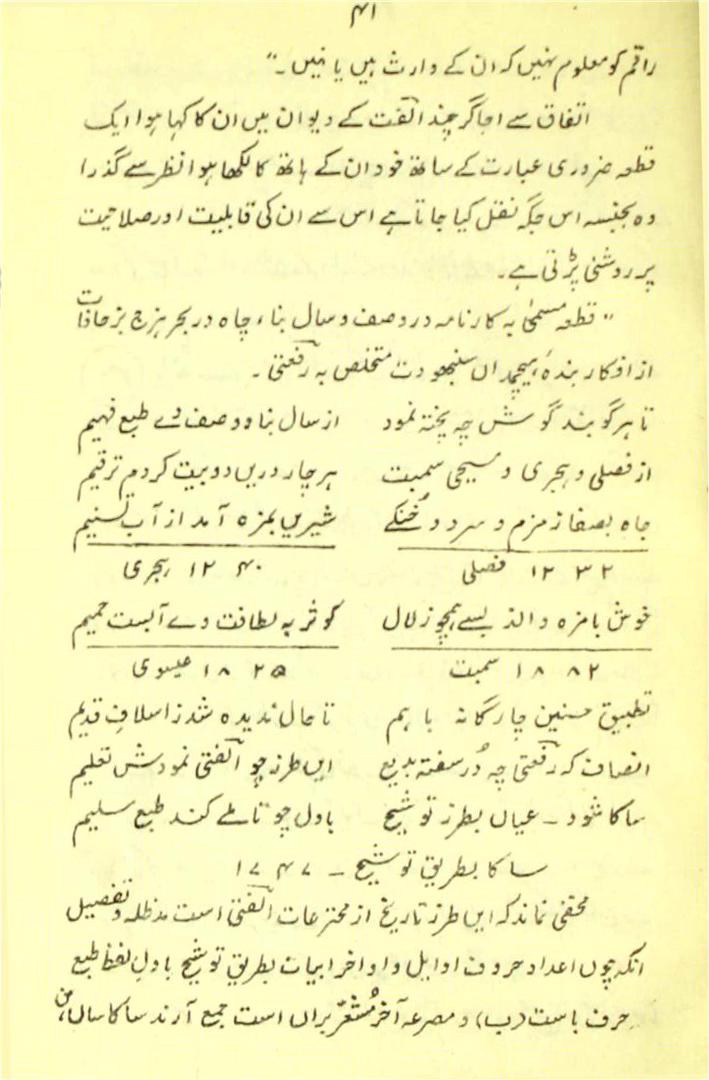 ۴۱
راقم کو معلوم نہیں کہ ان کے وارث ہیں یا نہیں۔"
اتفاق سے اجاگر چند الفت کے دیوان میں ان کا کہا ہوا ایک
قطعہ ضروری عبارت کے ساتھ خود ان کے ہاتھ کا لکھا ہوا نظر سے گذرا
وہ بجنسہ اس جگہ نقل کیا جاتا ہے اس سے ان کی قابلیت اور صلاحیت
پر روشنی پڑتی ہے۔
"قطعہ مسمیٰ بہ کارنامہ در وصف و سال بناء چاہ در بحر ہزج بزحافات
از افکار بندہ ہیچمداں سنبھودت متخلص بہ رفعتی۔
تا ہر گو بند گوش چہ پختہ نمود از سال بنا و وصف وے طبع فہیم
از فصلی و ہجری و مسیحی سمبت ہر چار دریں دو بیت کردم ترقیم
چاہ بصفا زمزم و سرد و خنکے شیریں بمزہ آمد از آب تسنیم
۱۲۳۲ فصلی ۱۲۴۰ ہجری
خوش بامزہ و الذ بسے ہمچو زلال کوثر بہ لطافت وے آبست حمیم
۱۸۸۲ سمبت ۱۸۲۵ عیسوی
تطبیق سنین چارگانہ باہم تا حال ندیدہ شد ز اسلاف قدیم
انصاف کہ رفعتی چہ دُر سفتہ بدیع ایں طرز چو الفتی نمودش تعلیم
ساکا شود ۔ عیاں بطرز توشیح بادل چو تاملے کند طبع سلیم
ساکا بطریق توشیح ۔ ۱۷۴۷
مخفی نماند کہ ایں طرز تاریخ از مخترعات الفتی است مدظلہ و تفصیل
آنکہ چوں اعداد حروف اوایل و اواخر ابیات بطریق توشیح باول لفظ طبع
حرف باست (ب) و مصرعہ آخر مُشعّر براں است جمع آرند ساکا سال